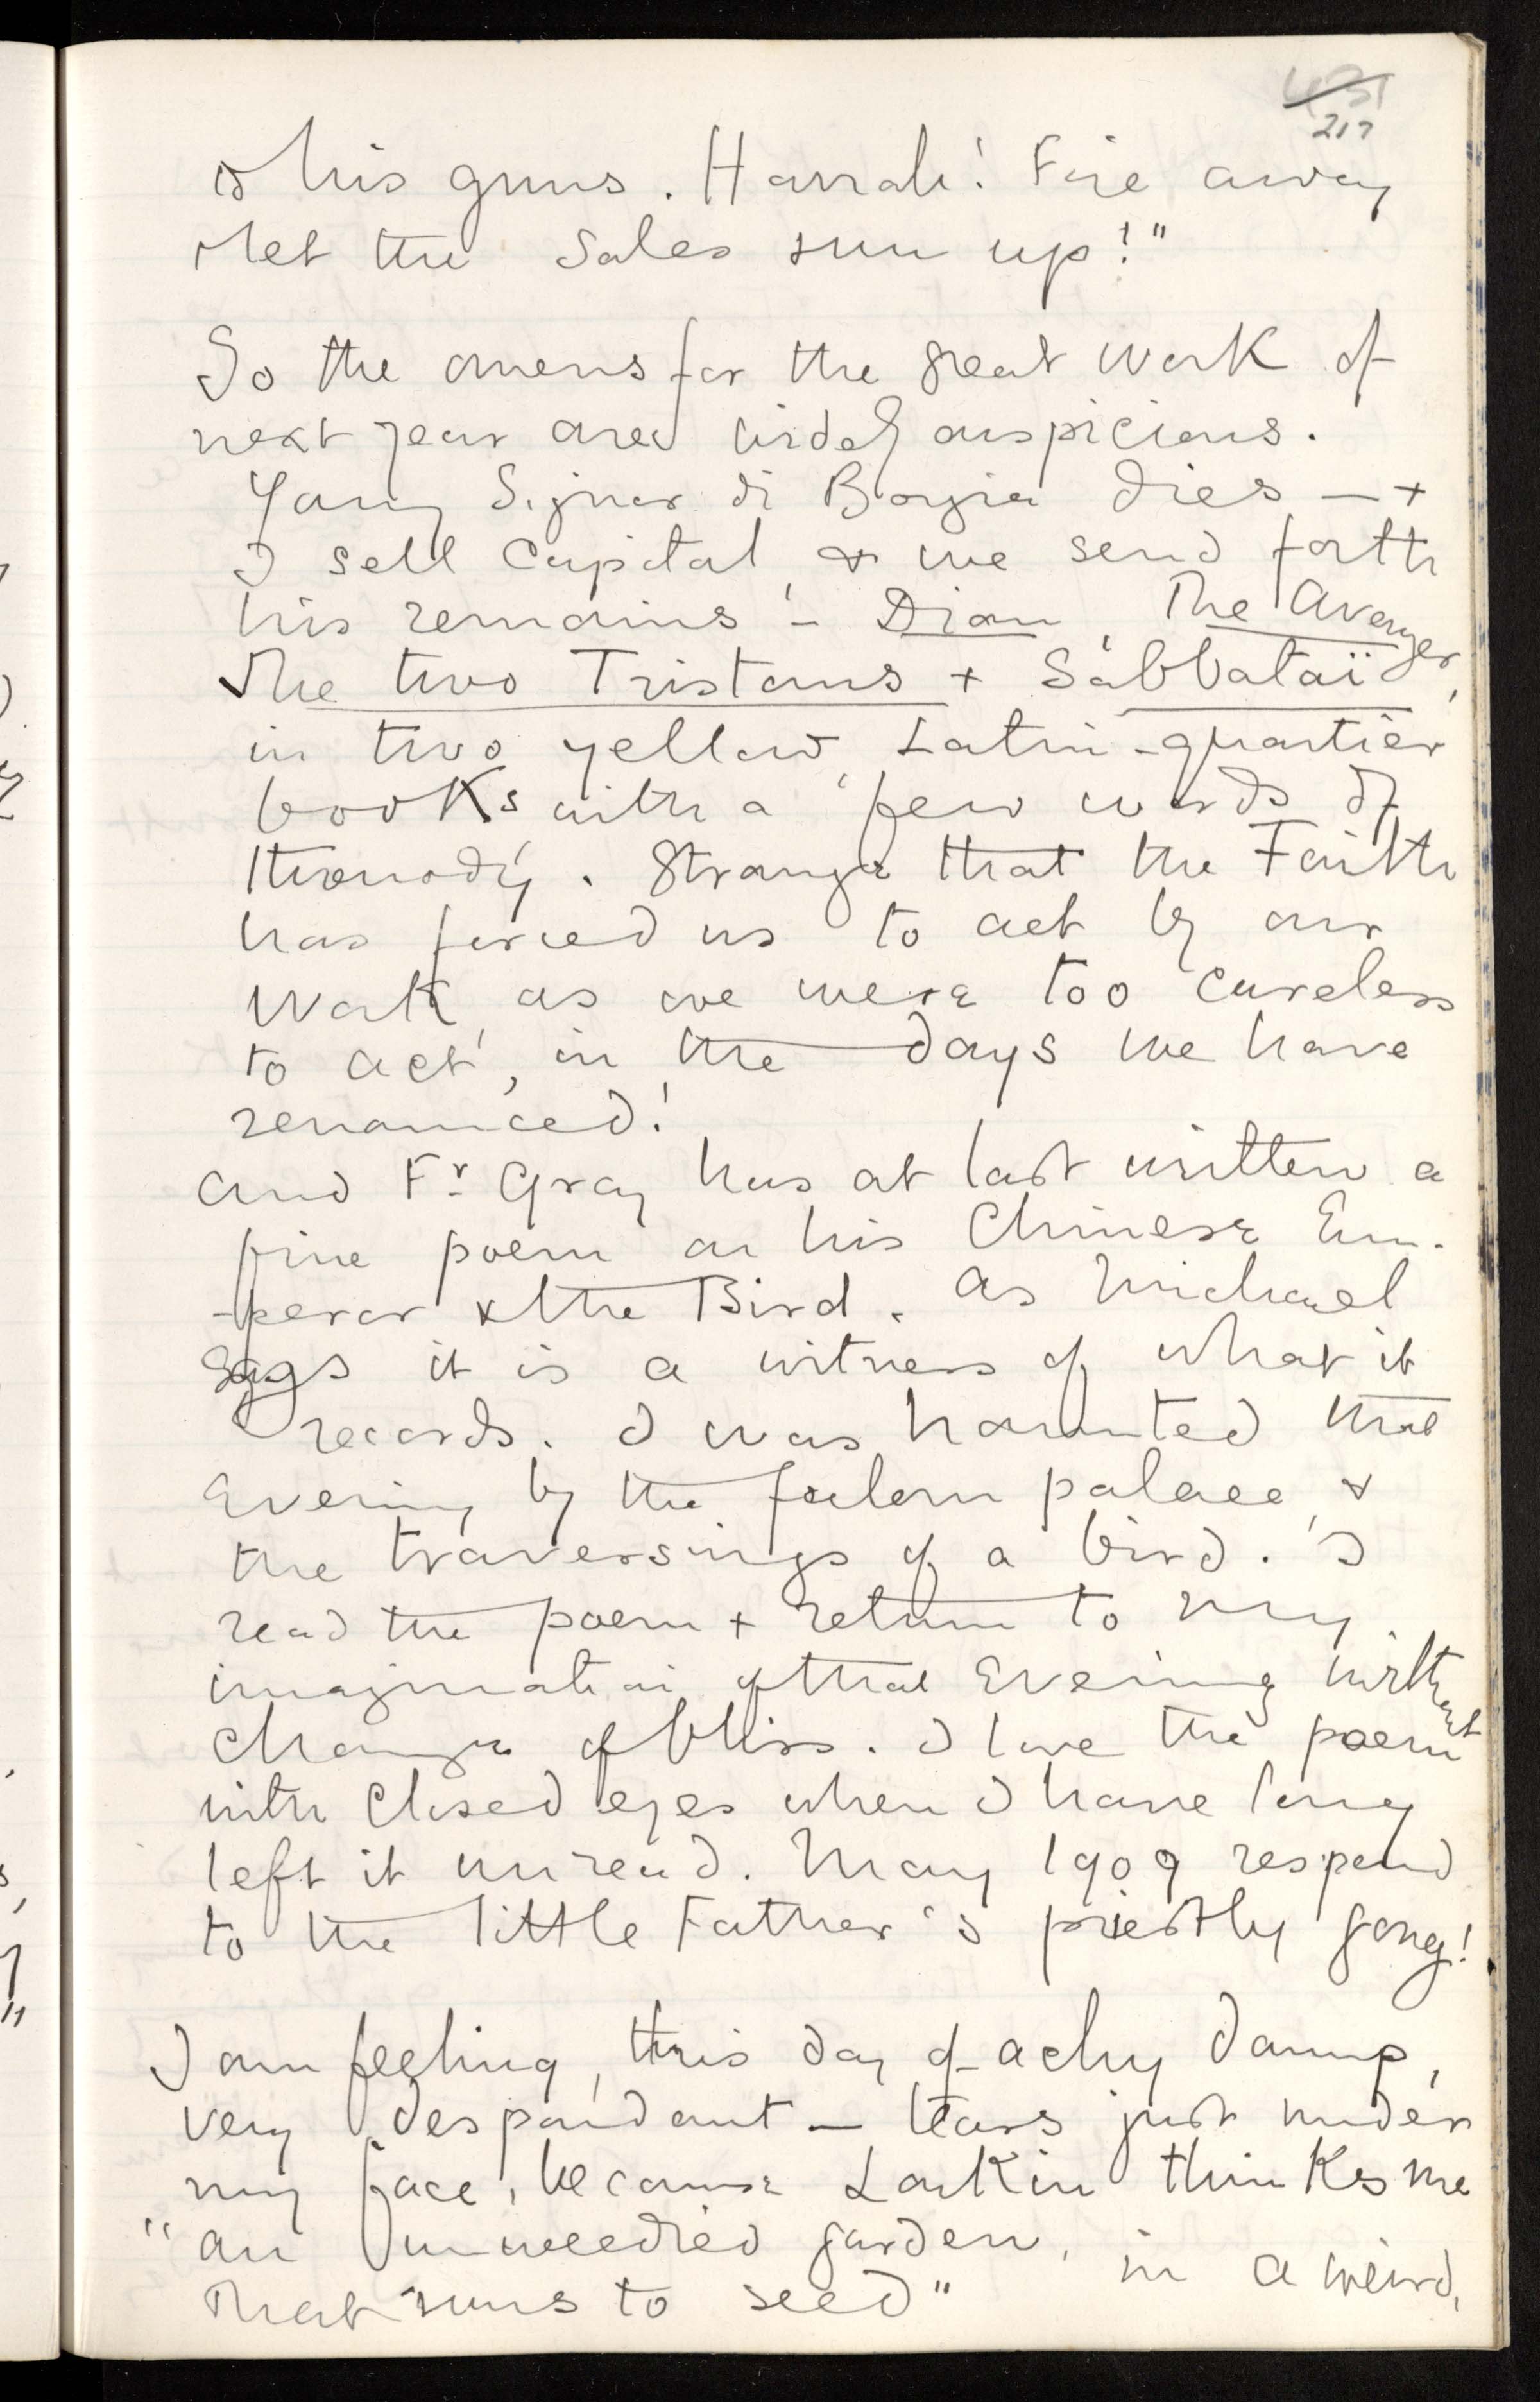 217
& his guns. Hurrah! Fire away
& let the Sales run up!"
So the omens for the great work of
next year are widely auspicious.
Young Signor di Borgia dies — +
I sell Capital, & we send forth
his remains — Dian, The Avenger,
The two Tristans + Sabbataï
in two yellow, Latin-quartier
books with a few words of
threnody. Strange that the Faith
has forced us to act by our
Work, as we were too careless
to act, in the days we have
renounced!
And Fr. Gray has at last written a
fine poem on his Chinese Em-
-peror & the Bird. As Michael
says it is a witness of what it
records. I was haunted that
Evening by the forlorn palace, &
the traversings of a bird. I
read the poem + return to my
imagination of that Evening without
change of bliss. I love the poem
with closed eyes when I have long
left it unread. May 1909 respond
to the little Father's priestly gong!
I am feeling, this day of achy damp,
very despondant — tears just under
my face, because Larkin thinks me
"an unweeded garden, in a weird,
That runs to seed"